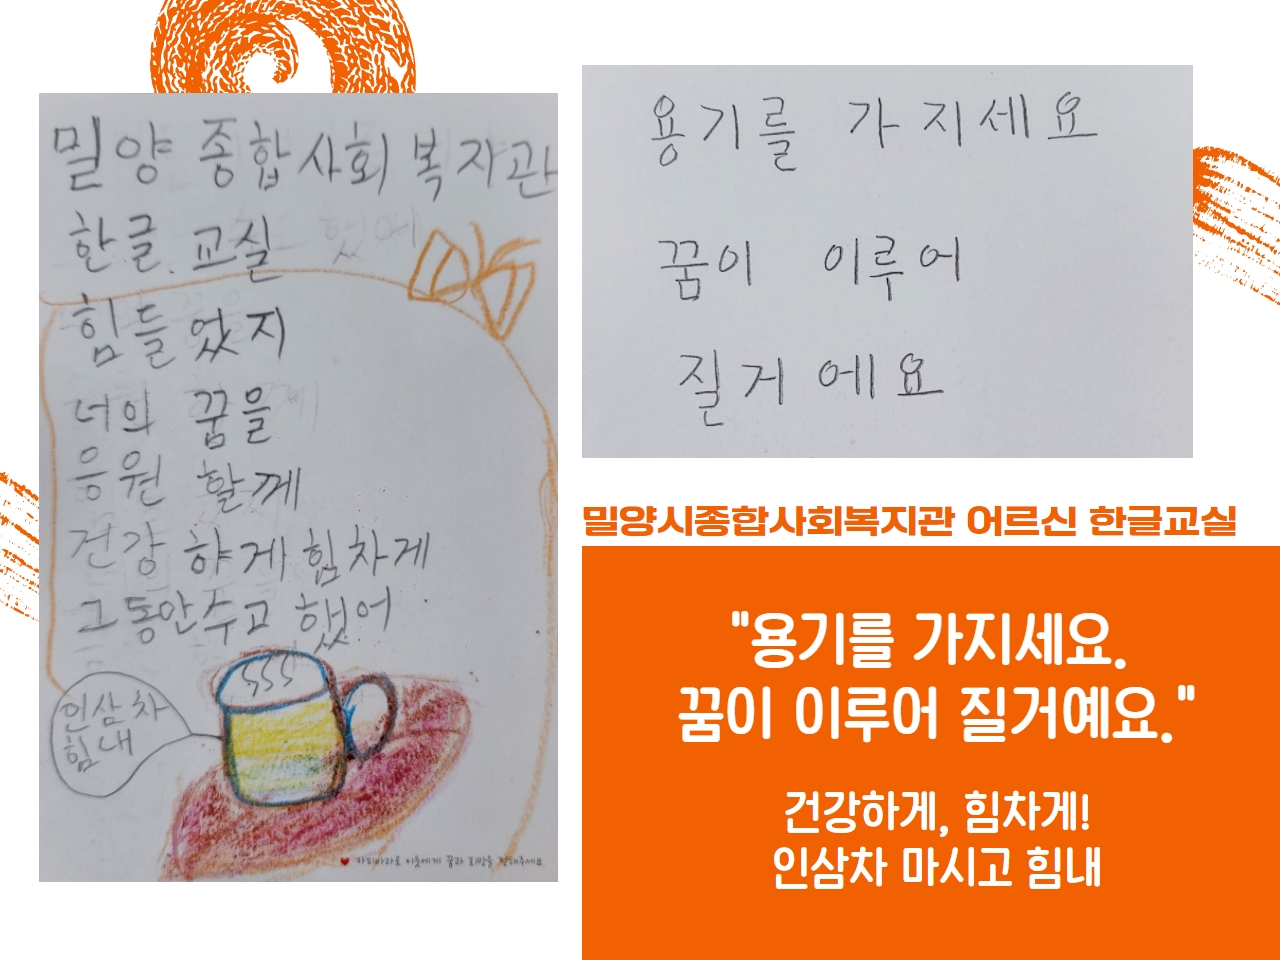 밀양 종합사회 복지관
한글 교실
힘들었지
너의 꿈을
응원 할께
건강 하게 힘차게
그동안 수고 했어
인삼차
힘내
카피바라로 이웃에게 꿈과 희망을 전해주세요
용기를 가지세요
꿈이 이루어
질거에요
밀양시종합사회복지관 어르신 한글교실
"용기를 가지세요.
꿈이 이루어 질거예요."
건강하게, 힘차게!
인삼차 마시고 힘내